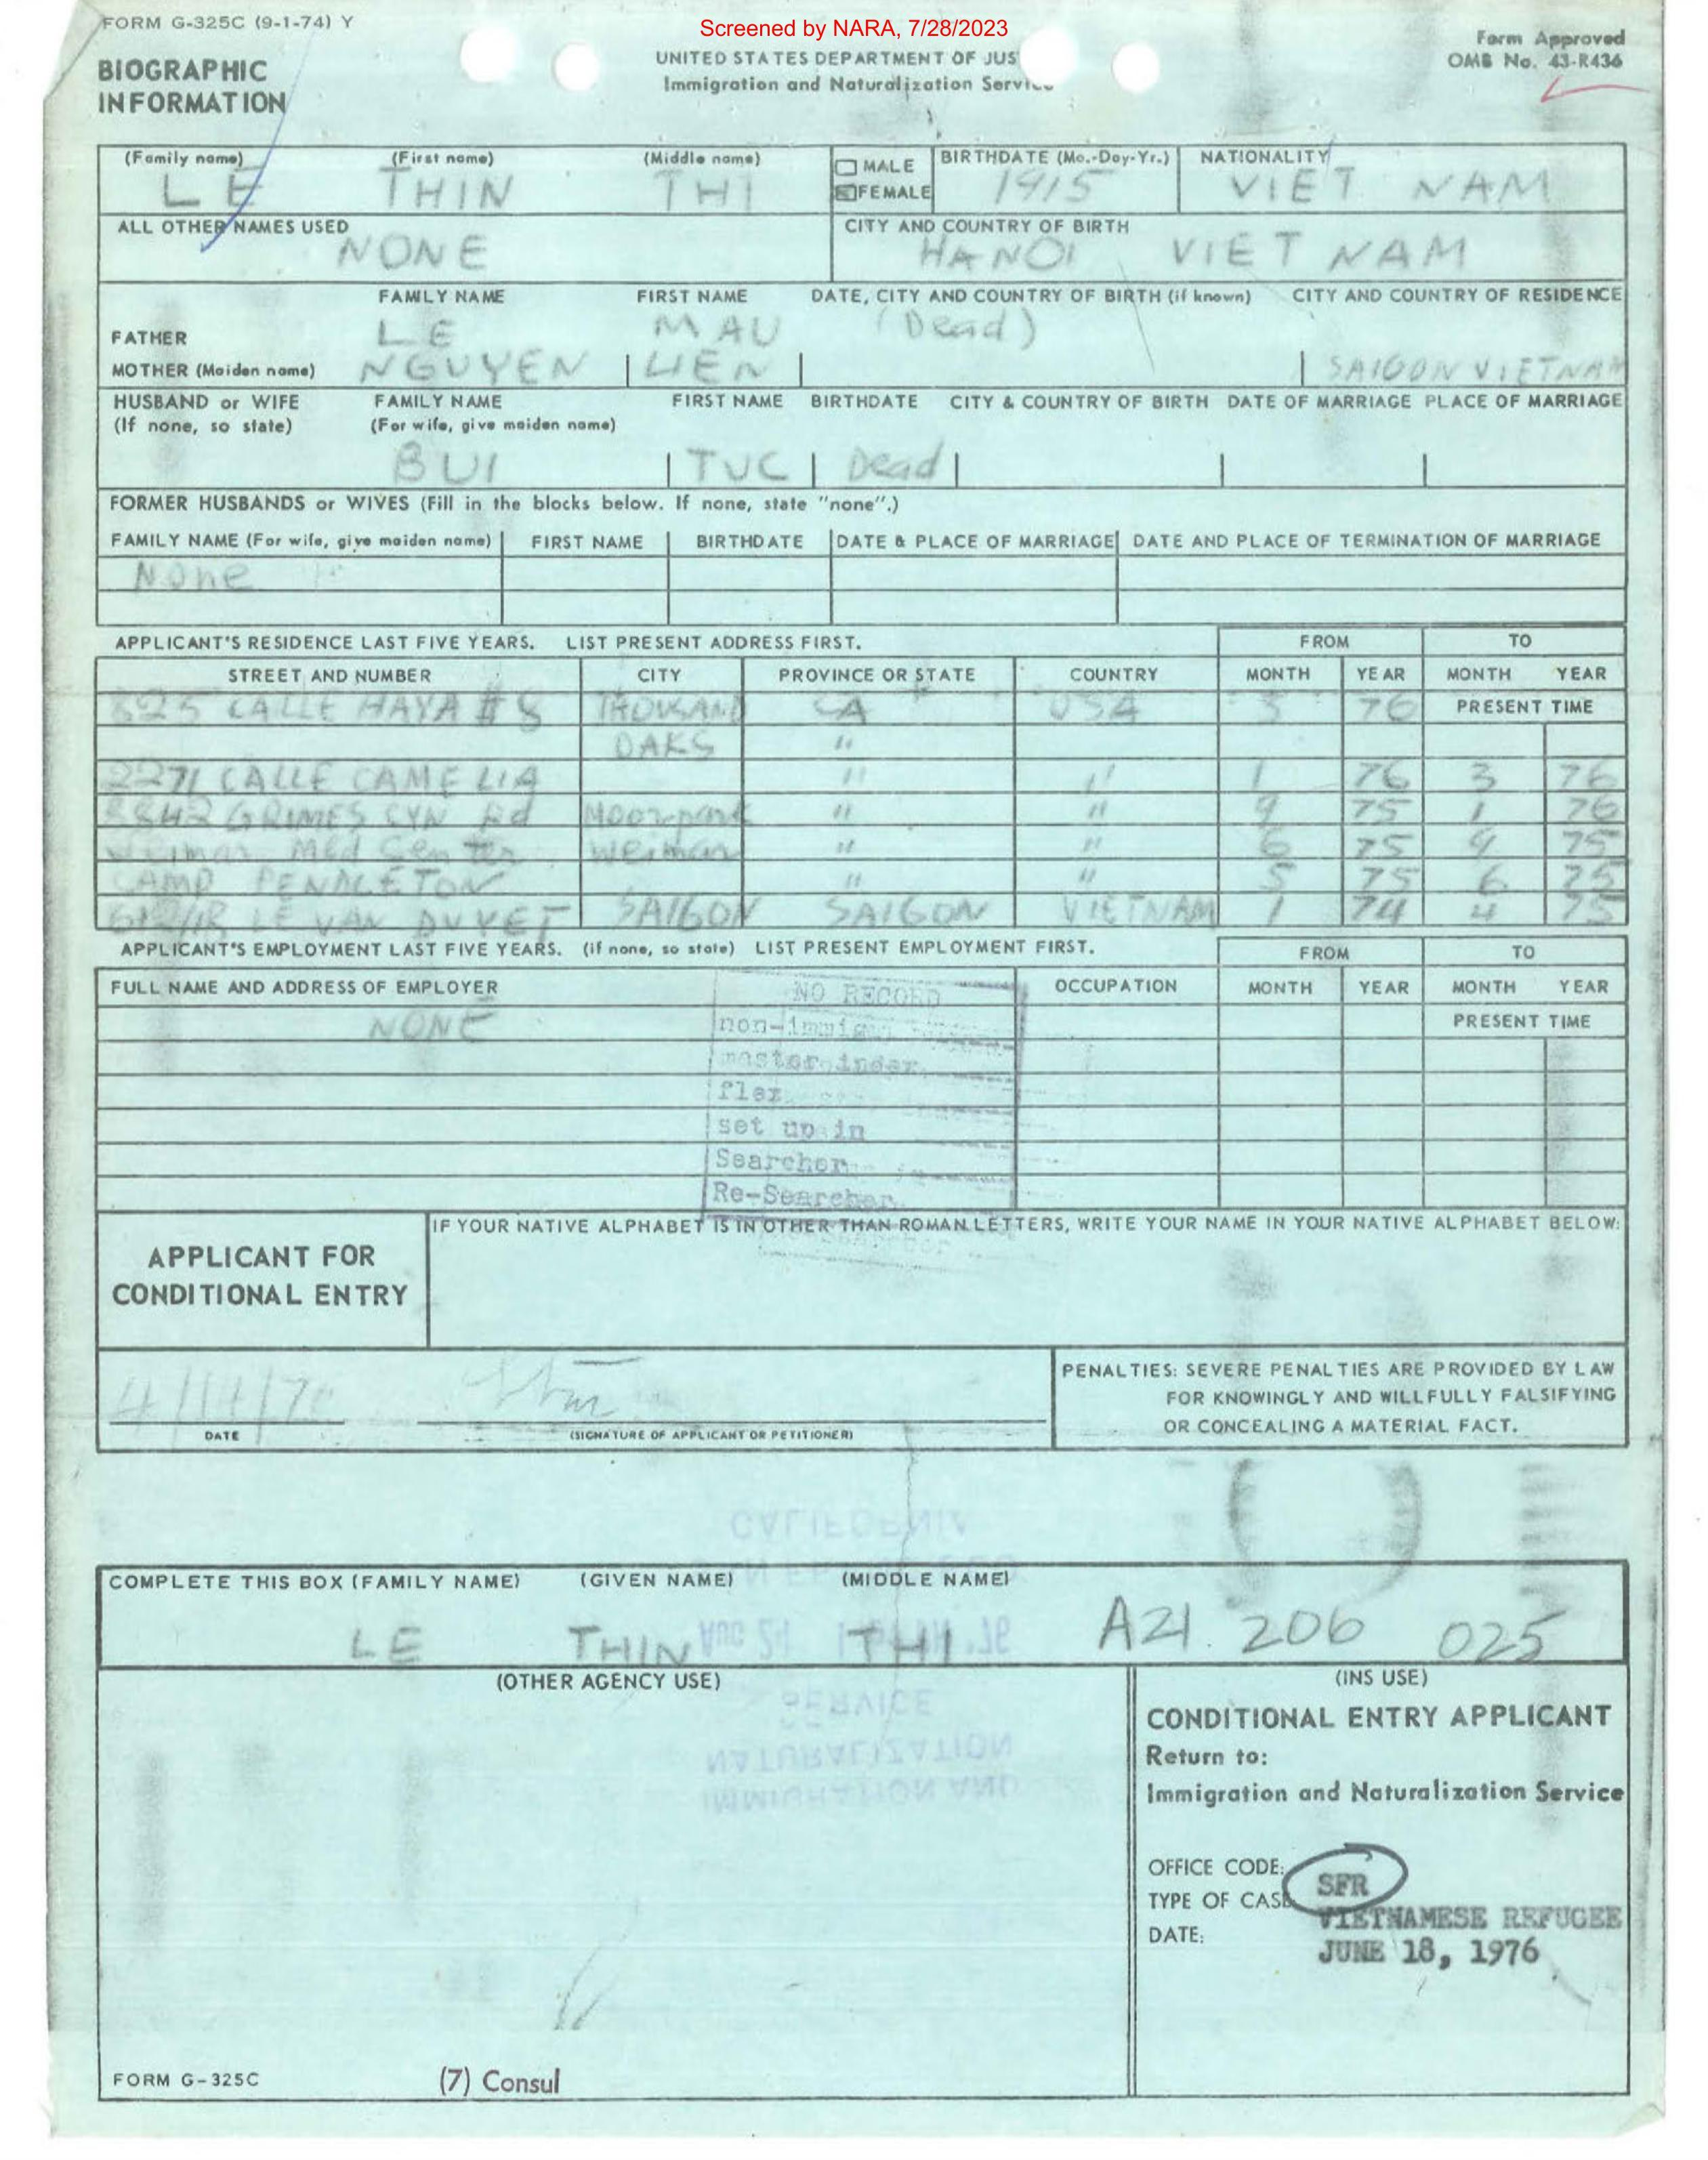 FORM G-325C (9-1-74) Y
Screened by NARA, 7/28/2023
Form Approved
OMB No. 43-R436
BIOGRAPHIC
INFORMATION
UNITED STATES DEPARTMENT OF JUS
Immigration and Naturalization Service
(Family name) (First name) (Middle name) MALE BIRTHDATE (Mo.-Day-Yr.) NATIONALITY
LE THIN THI FEMALE 1915 VIET NAM
ALL OTHER NAMES USED CITY AND COUNTRY OF BIRTH
NONE HANOI VIET NAM
FAMILY NAME FIRST NAME DATE, CITY AND COUNTRY OF BIRTH (if known) CITY AND COUNTRY OF RESIDENCE
FATHER LE MAU (Dead)
MOTHER (Maiden name) NGUYEN LIEN SAIGON VIETNAM
HUSBAND or WIFE FAMILY NAME FIRST NAME BIRTHDATE CITY & COUNTRY OF BIRTH DATE OF MARRIAGE PLACE OF MARRIAGE
(If none, so state) (For wife, give maiden name)
BUI TUC Dead
FORMER HUSBANDS or WIVES (Fill in the blocks below. If none, state "none".)
FAMILY NAME (For wife, give maiden name) FIRST NAME BIRTHDATE DATE & PLACE OF MARRIAGE DATE AND PLACE OF TERMINATION OF MARRIAGE
None
APPLICANT'S RESIDENCE LAST FIVE YEARS. LIST PRESENT ADDRESS FIRST. FROM TO
STREET AND NUMBER CITY PROVINCE OR STATE COUNTRY MONTH YEAR MONTH YEAR
CALLE HAYA # THOUSAND CA USA 3 76 PRESENT TIME
OAKS "
2271 CALLE CAMELIA " " 1 76 3 76
GRIMES CYN Rd Moorpark " " 9 75 1 76
Weimar Med Center Weimar " " 6 75 9 75
CAMP PENDLETON " " 5 75 6 75
LE VAN DUYET SAIGON SAIGON VIETNAM 1 74 4 75
APPLICANT'S EMPLOYMENT LAST FIVE YEARS. (if none, so state) LIST PRESENT EMPLOYMENT FIRST. FROM TO
FULL NAME AND ADDRESS OF EMPLOYER OCCUPATION MONTH YEAR MONTH YEAR
NONE PRESENT TIME
NO RECORD
non-immig
master index
flex
set up in
Searcher
Re-Searcher
IF YOUR NATIVE ALPHABET IS IN OTHER THAN ROMAN LETTERS, WRITE YOUR NAME IN YOUR NATIVE ALPHABET BELOW:
APPLICANT FOR
CONDITIONAL ENTRY
PENALTIES: SEVERE PENALTIES ARE PROVIDED BY LAW
FOR KNOWINGLY AND WILLFULLY FALSIFYING
OR CONCEALING A MATERIAL FACT.
4/14/76
DATE (SIGNATURE OF APPLICANT OR PETITIONER)
CALIFORNIA
COMPLETE THIS BOX (FAMILY NAME) (GIVEN NAME) (MIDDLE NAME)
LE THIN THI A21 206 025
(OTHER AGENCY USE) (INS USE)
SERVICE
NATURALIZATION
IMMIGRATION AND
CONDITIONAL ENTRY APPLICANT
Return to:
Immigration and Naturalization Service
OFFICE CODE: SFR
TYPE OF CASE VIETNAMESE REFUGEE
DATE: JUNE 18, 1976
FORM G-325C (7) Consul